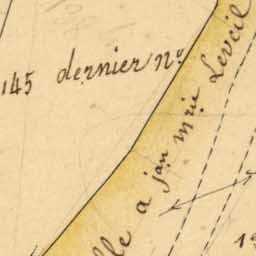 145 dernier no
lle a jan mrie Leveil
19